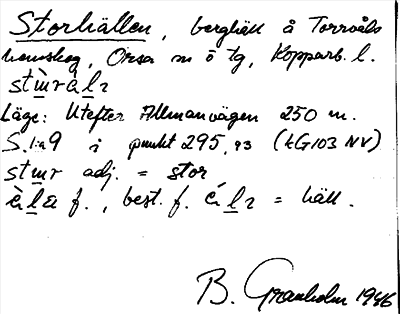 Storhällen, berghäll å Torrvåls
hemskog, Orsa sn ö tg, Kopparb. l.
Läge: Utefter Allmanvägen 250 m.
S. om 9 i punkt 295,93 (kG103 NV)
adj. = stor
f., best. f. = häll.
B. Granholm 1946